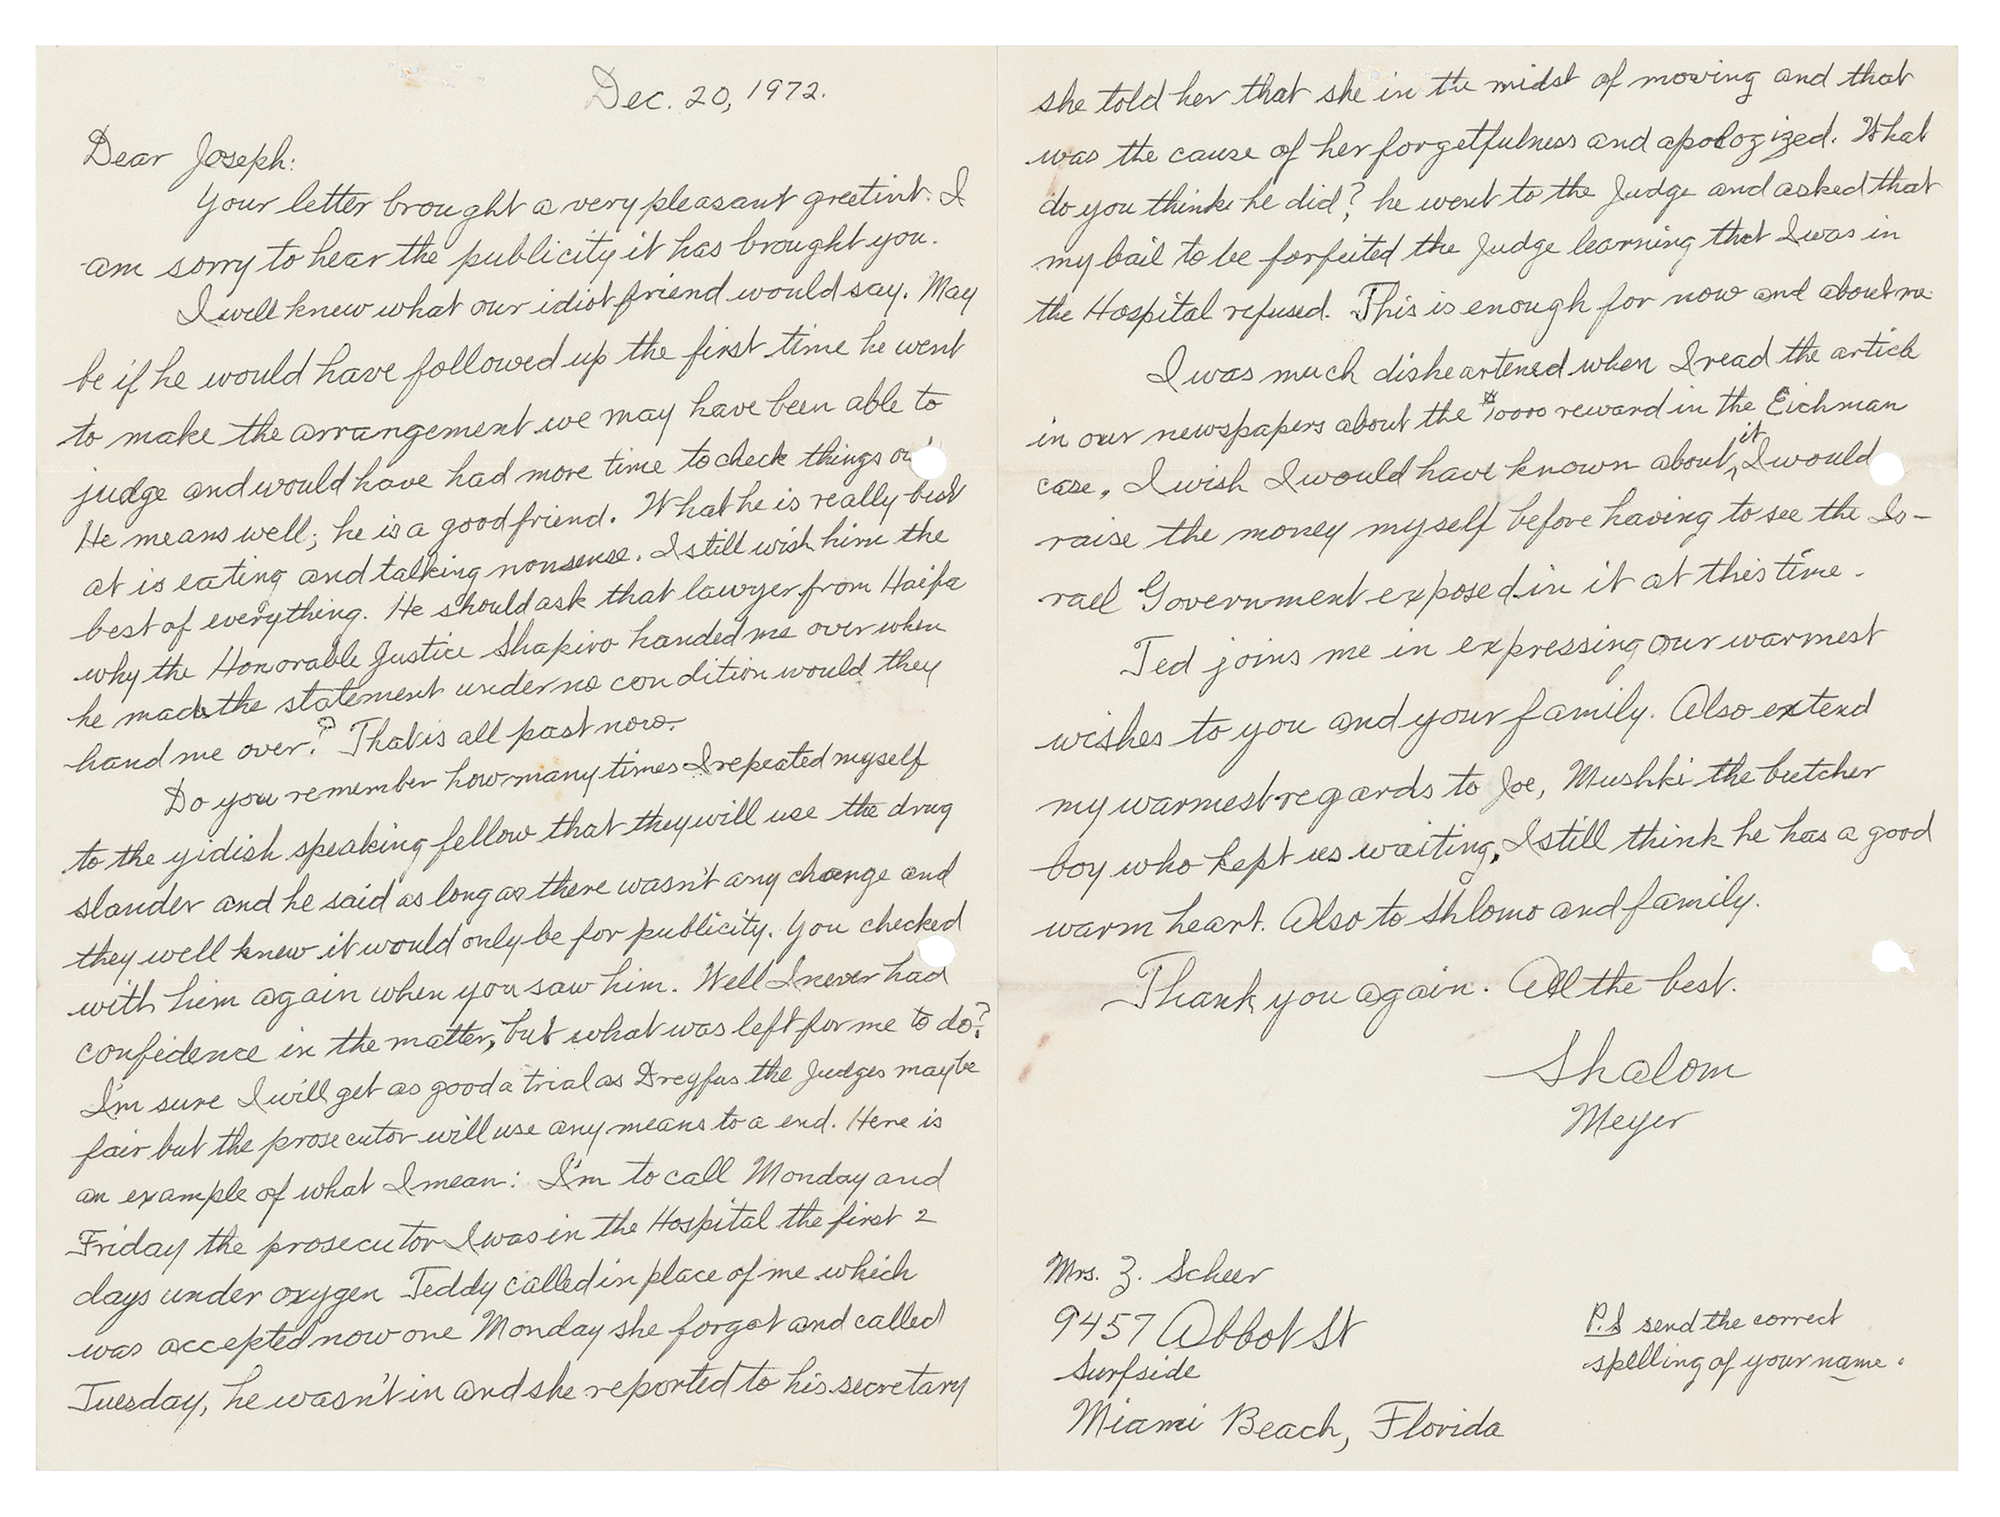 Dec. 20, 1972.
Dear Joseph:
Your letter brought a very pleasant greetint. I
am sorry to hear the publicity it has brought you.
I well knew what our idiot friend would say. May
be if he would have followed up the first time he went
to make the arrangement we may have been able to
judge and would have had more time to check things ou
He means well; he is a good friend. What he is really best
at is eating and talking nonsense. I still wish him the
best of everything. He should ask that lawyer from Haifa
why the Honorable Justice Shapiro handed me over when
he made the statement under no condition would they
hand me over? That is all past now.
Do you remember how many times I repeated myself
to the yidish speaking fellow that they will use the drug
slander and he said as long as there wasn't any change and
they well knew it would only be for publicity. You checked
with him again when you saw him. Well I never had
confidence in the matter, but what was left for me to do?
I'm sure I will get as good a trial as Dreyfus the Judges maybe
fair but the prosecutor will use any means to a end. Here is
an example of what I mean: I'm to call Monday and
Friday the prosecutor I was in the Hospital the first 2
days under oxygen Teddy called in place of me which
was accepted now one Monday she forgot and called
Tuesday, he wasn't in and she reported to his secretary
she told her that she in the midst of moving and that
was the cause of her forgetfulness and apologized. What
do you think he did? he went to the Judge and asked that
my bail to be forfeited the Judge learning that I was in
the Hospital refused. This is enough for now and about me
I was much disheartened when I read the article
in our newspapers about the $10000 reward in the Eichman
case. I wish I would have known about it, I would
raise the money myself before having to see the Is-
rael Government exposed in it at this time.
Ted joins me in expressing our warmest
wishes to you and your family. Also extend
my warmest regards to Joe, Mushki the butcher
boy who kept us waiting, I still think he has a good
warm heart. Also to Shlomo and family.
Thank you again. All the best.
Shalom
Meyer
Mrs. Z. Scheer
9457 Abbot St
Surfside
Miami Beach, Florida
P.S send the correct
spelling of your name.